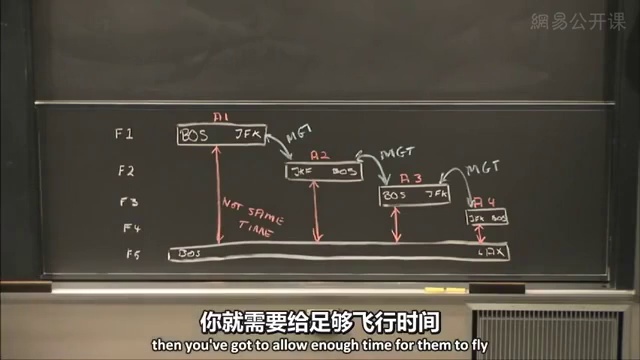 網易公开课
A1
F1 BOS JFK MGT
A2
F2 JKF BOS MGT
A3 MGT
F3 BOS JFK
A4
NOT SAME TIME
F4 JFK BOS
F5 BOS LAX
你就需要给足够飞行时间
then you've got to allow enough time for them to fly